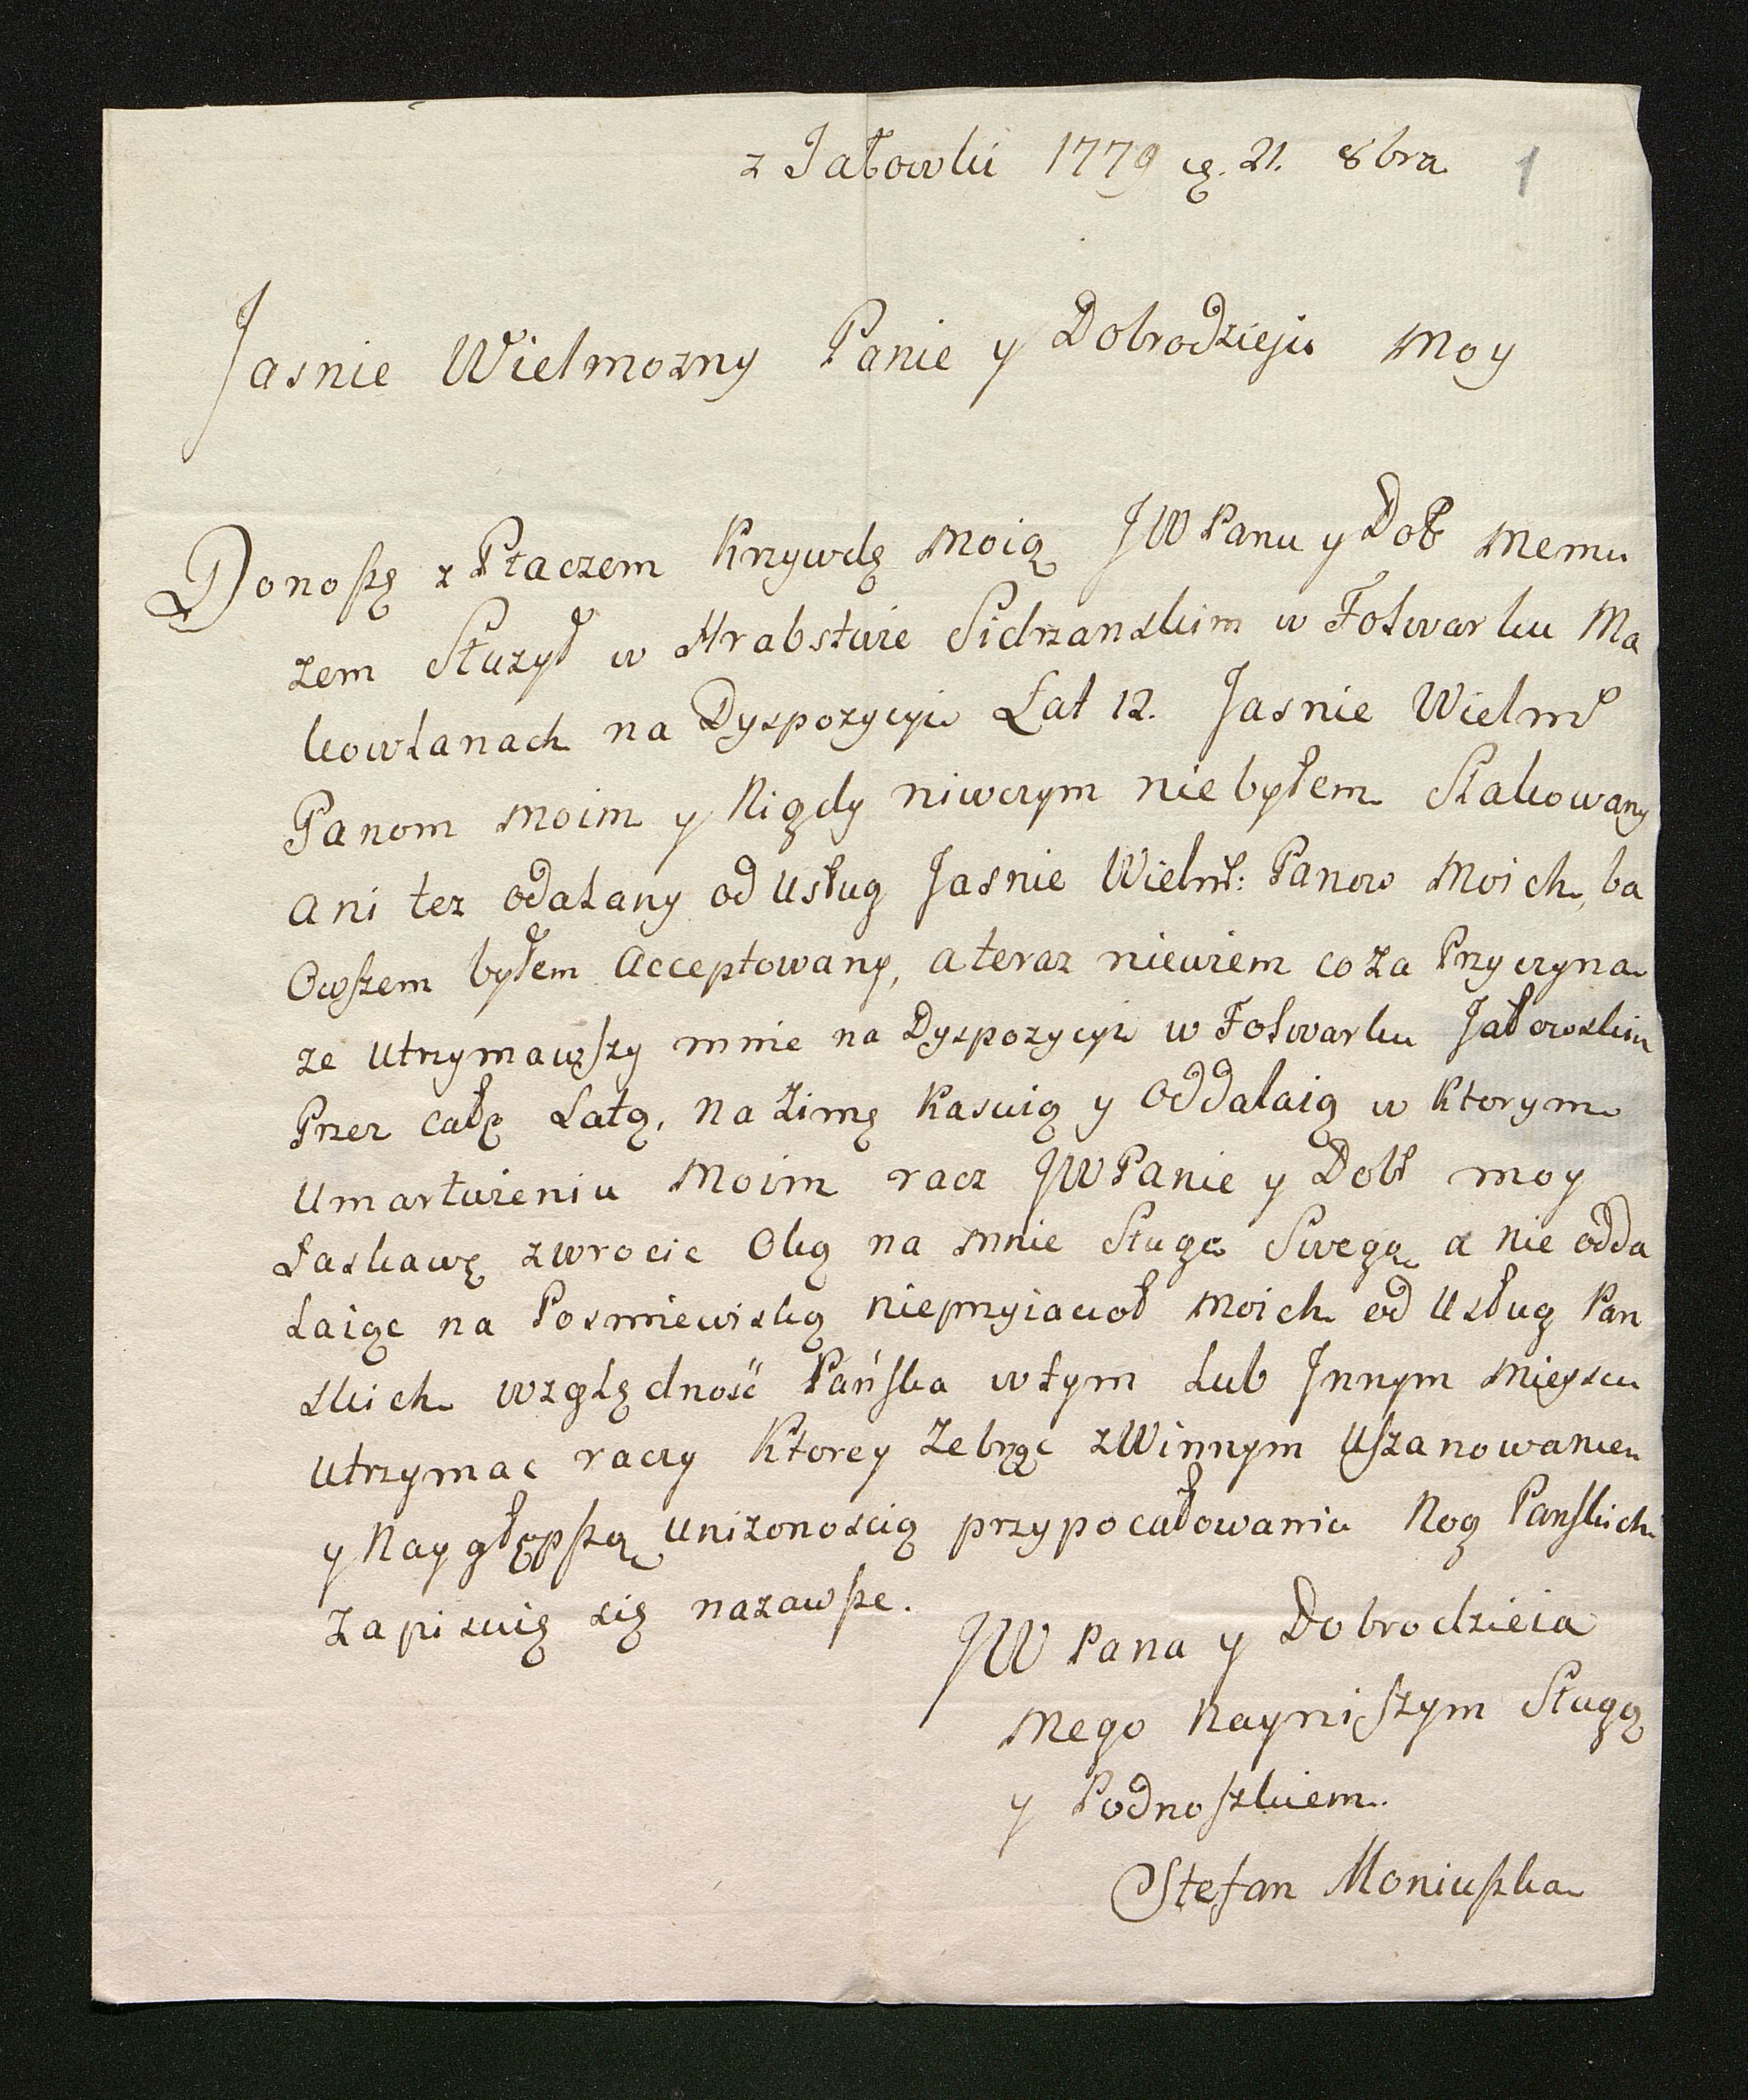 z Jałowki 1779 g. 21. 8bra 1
Jasnie Wielmozny Panie y Dobrodzieju Moy
Donoszę z Płaczem Krzywdę Moią JW Panu y Dob Memu
zem Słuzył w Hrabstwie Sidrzanskim w Folwarku Ma
kowlanach na Dyspozycyi Lat 12. Jasnie Wielm
Panom Moim y Nigdy niwczym niebyłem Skakowany
ani tez odalany od usług Jasnie Wielm: Panow Moich, ba
Owszem byłem Acceptowany, a teraz niewiem co za Przyczyna
ze utrzymawszy mnie na Dyspozycyi w Folwarku Jałowskim
Przez całę Latą, na Zimę Kasuią y Oddalaią w Ktorym
Umartwieniu Moim racz JW Panie y Dob moy
Łaskawę zwrocic Oką na mnie Sługę Swegą a nie odda
laiąc na Posmiewiską nieprzyiacioł Moich od Usług Pan
skich względność Pańska w tym lub Jnnym Mieyscu
utrzymac raczy Ktorey Zebrząc z Winnym Uszanowaniem
y Naygłępszą unizonoscią przy pocałowaniu Nog Panskich
Zapisuię się nazawsze.
JW Pana y Dobrodzieia
Mego Nayniszym Sługą
y Podnoszkiem
Stefan Moniuszka